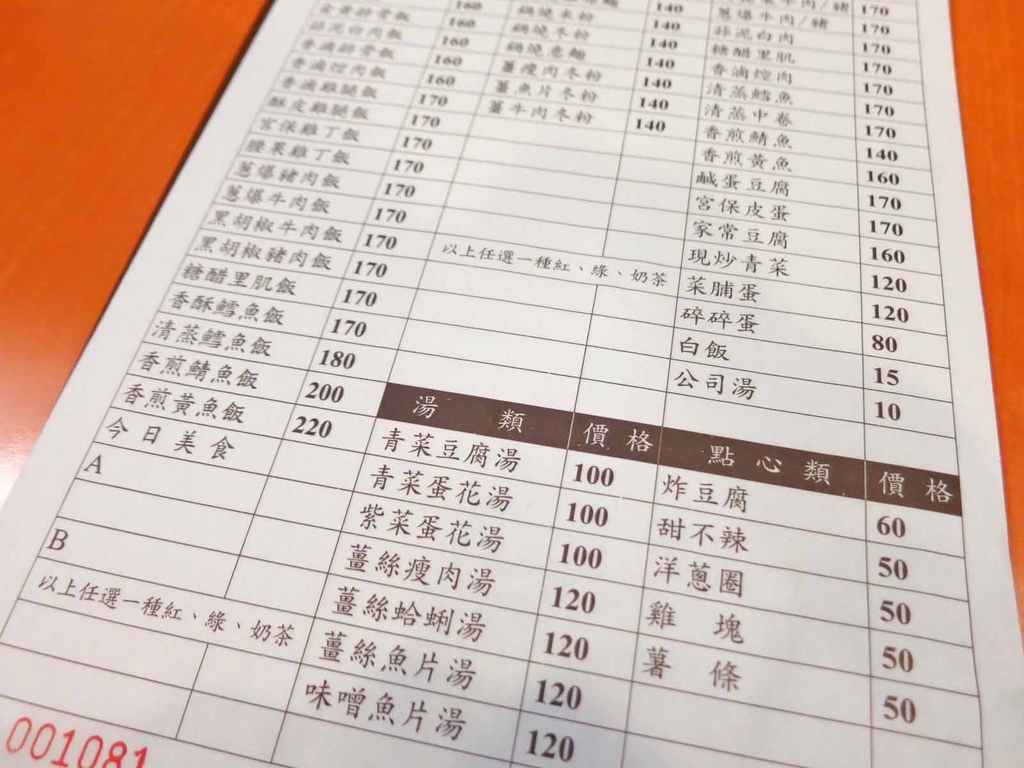 160
蒜泥白肉飯 160
香滷排骨飯 160
香滷焢肉飯 160
香滷雞腿飯 170
酥皮雞腿飯 170
宮保雞丁飯 170
腰果雞丁飯 170
蔥爆豬肉飯 170
蔥爆牛肉飯 170
黑胡椒牛肉飯 170
黑胡椒豬肉飯 170
糖醋里肌飯 170
香酥鱈魚飯 170
清蒸鱈魚飯 180
香煎鯖魚飯 200
香煎黃魚飯 220
今日美食
A
B
以上任選一種紅、綠、奶茶
001081
140
鍋燒米粉 140
鍋燒冬粉 140
鍋燒意麵 140
薑瘦肉冬粉 140
薑魚片冬粉 140
薑牛肉冬粉 140
以上任選一種紅、綠、奶茶
湯類 價格
青菜豆腐湯 100
青菜蛋花湯 100
紫菜蛋花湯 100
薑絲瘦肉湯 120
薑絲蛤蜊湯 120
薑絲魚片湯 120
味噌魚片湯 120
牛肉/豬 170
蔥爆牛肉/豬 170
蒜泥白肉 170
糖醋里肌 170
香滷焢肉 170
清蒸鱈魚 170
清蒸中卷 170
香煎鯖魚 140
香煎黃魚 160
鹹蛋豆腐 170
宮保皮蛋 170
家常豆腐 160
現炒青菜 120
菜脯蛋 120
碎碎蛋 80
白飯 15
公司湯 10
點心類 價格
炸豆腐 60
甜不辣 50
洋蔥圈 50
雞塊 50
薯條 50